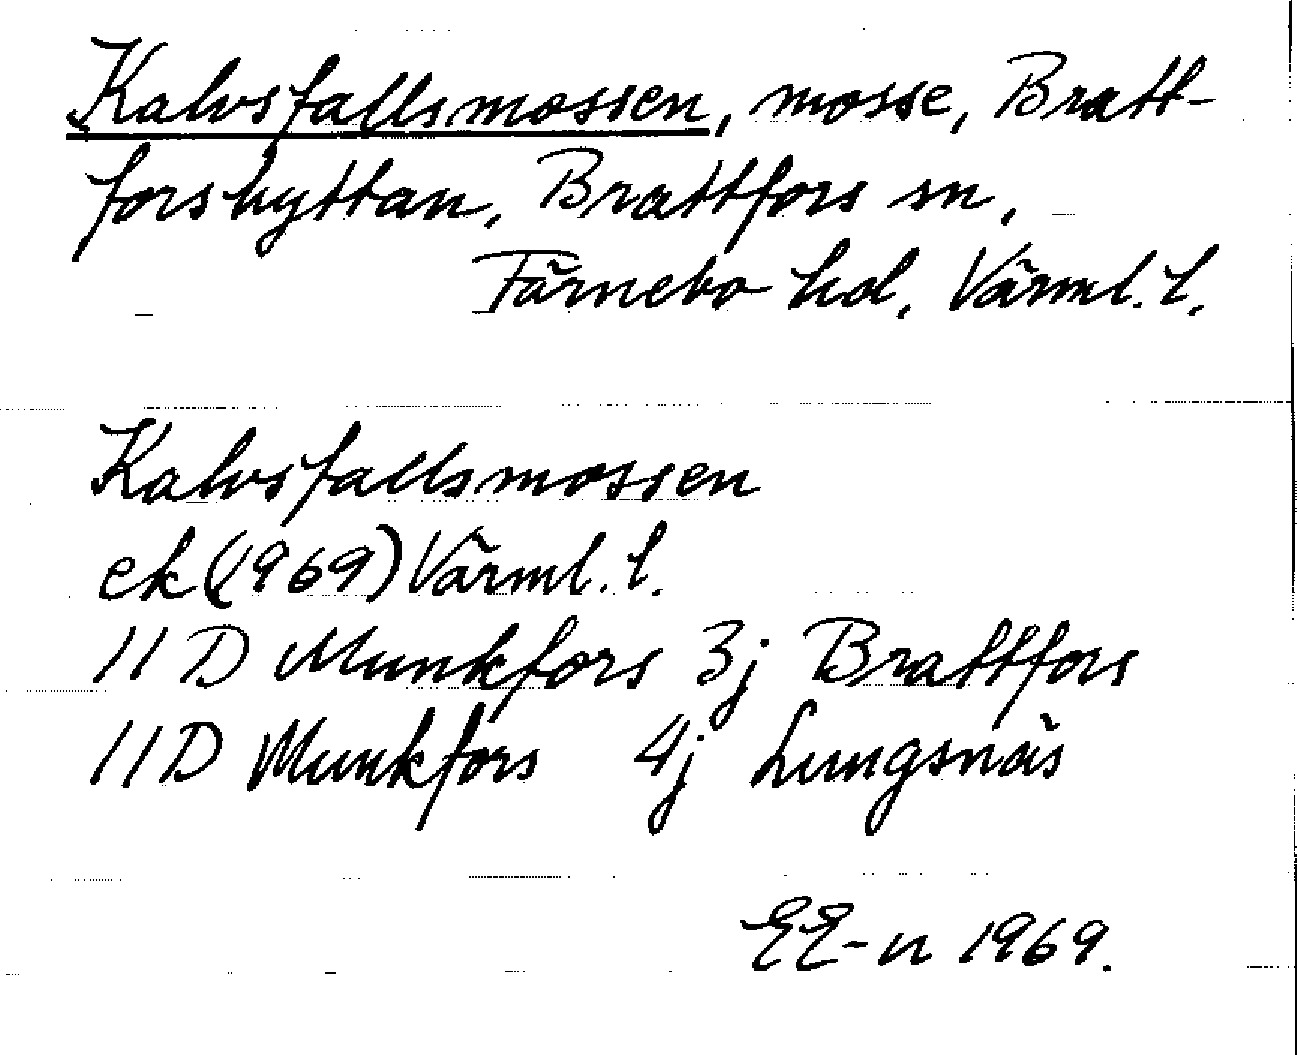 Kalvsfallsmossen, mosse, Bratt-
forshyttan, Brattfors sn,
Färnebo hd, Värml. l.
Kalvsfallsmossen
ek (1969) Värml. l.
11 D Munkfors 3j Brattfors
11D Munkfors 4j Lungsnäs
EE-n 1969.